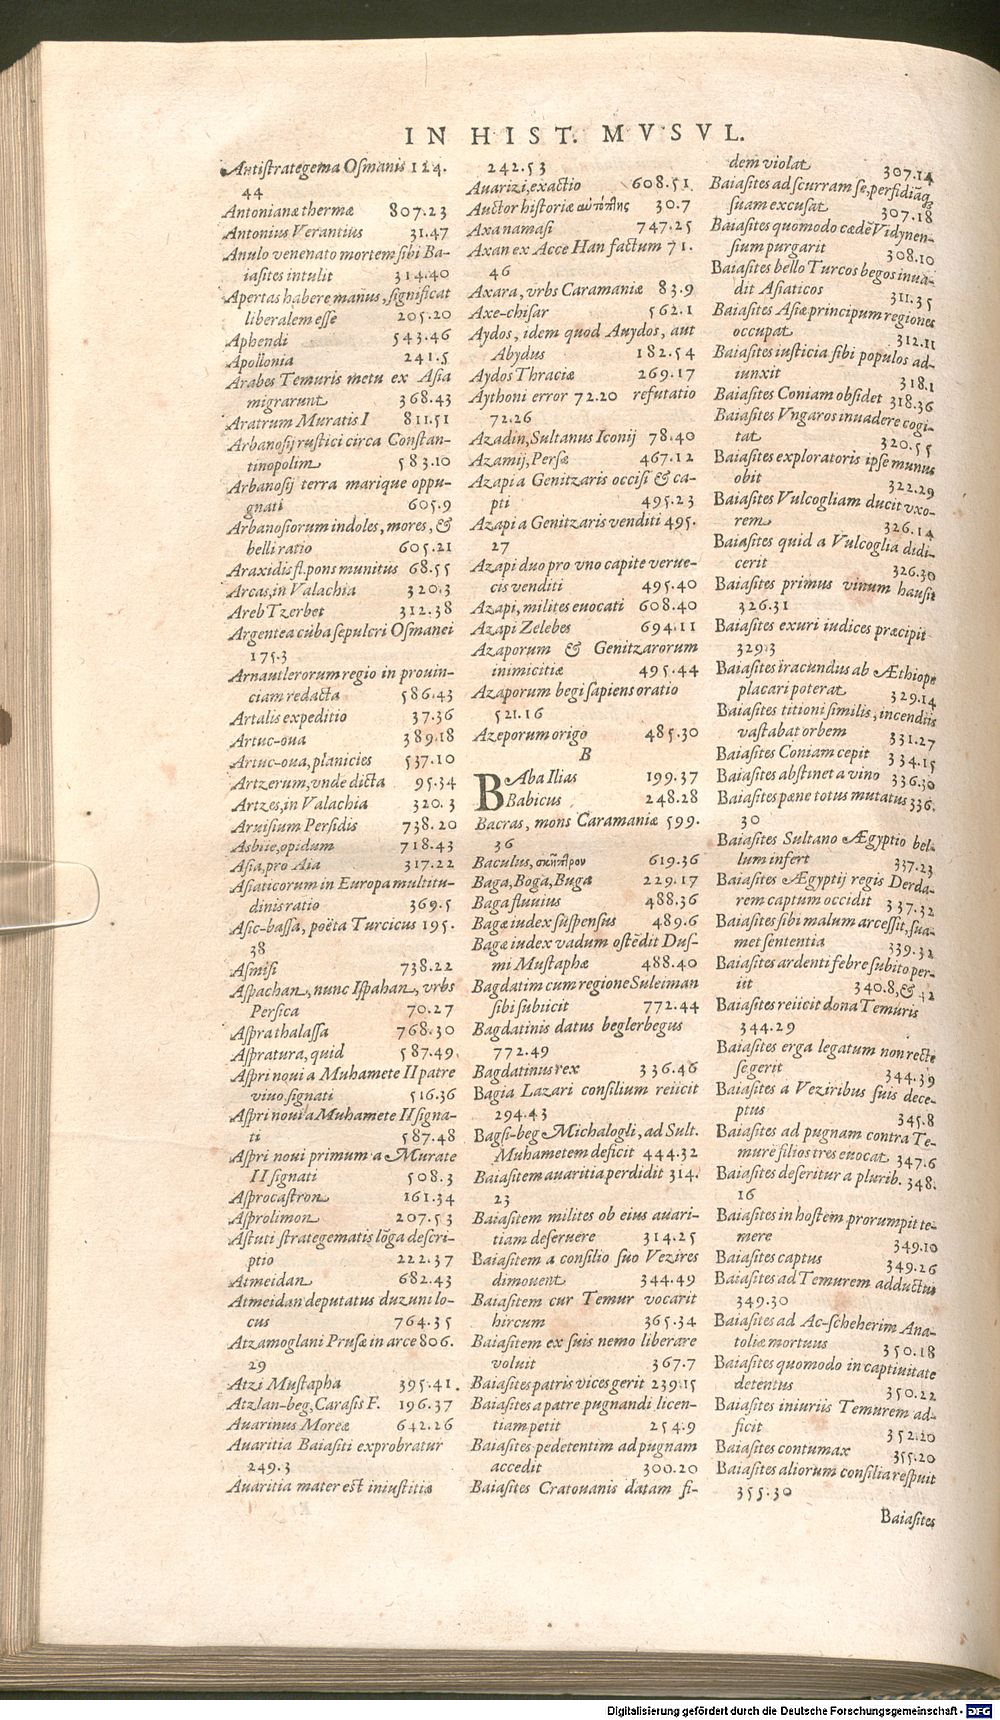 IN HIST. MVSVL.
Antistrategema Osmanis 124.
44
Antonianæ thermæ 807.23
Antonius Verantius 31.47
Anulo venenato mortem sibi Ba-
iasites intulit 314.40
Apertas habere manus, significat
liberalem esse 205.20
Aphendi 543.46
Apollonia 241.5
Arabes Temuris metu ex Asia
migrarunt 368.43
Aratrum Muratis I 811.51
Arbanosij rustici circa Constan-
tinopolim 583.10
Arbanosij terra marique oppu-
gnati 605.9
Arbanosiorum indoles, mores, &
belli ratio 605.21
Araxidis fl. pons munitus 68.55
Arcas, in Valachia 320.3
Areb Tzerbet 312.38
Argentea cūba sepulcri Osmanei
175.3
Arnautlerorum regio in prouin-
ciam redacta 586.43
Artalis expeditio 37.36
Artuc-oua 389.18
Artuc-oua, planicies 537.10
Artzerum, vnde dicta 95.34
Artzes, in Valachia 320.3
Aruisium Persidis 738.20
Asbiie, opidum 718.43
Asia, pro Aia 317.22
Asiaticorum in Europa multitu-
dinis ratio 369.5
Asic-bassa, poëta Turcicus 195.
38
Asmisi 738.22
Aspachan, nunc Ispahan, vrbs
Persica 70.27
Aspra thalassa 768.30
Aspratura, quid 587.49
Aspri noui a Muhamete II patre
viuo signati 516.36
Aspri noui a Muhamete II signa-
ti 587.48
Aspri noui primum a Murate
II signati 508.3
Asprocastron 161.34
Asprolimon 207.53
Astuti strategematis lōga descri-
ptio 222.37
Atmeidan 682.43
Atmeidan deputatus duzuni lo-
cus 764.35
Atzamoglani Prusæ in arce 806.
29
Atzi Mustapha 395.41.
Atzlan-beg, Carasis F. 196.37
Auarinus Moreæ 642.26
Auaritia Baiasiti exprobratur
249.3
Auaritia mater est iniustitiæ
242.53
Auarizi, exactio 608.51
Auctor historiæ αὐτόπτης 30.7
Axanamasi 747.25
Axan ex Acce Han factum 71.
46
Axara, vrbs Caramaniæ 83.9
Axe-chisar 562.1
Aydos, idem quod Auydos, aut
Abydus 182.54
Aydos Thraciæ 269.17
Aythoni error 72.20 refutatio
72.26
Azadin, Sultanus Iconij 78.40
Azamij, Persæ 467.12
Azapi a Genitzaris occisi & ca-
pti 495.23
Azapi a Genitzaris venditi 495.
27
Azapi duo pro vno capite verue-
cis venditi 495.40
Azapi, milites euocati 608.40
Azapi Zelebes 694.11
Azaporum & Genitzarorum
inimicitiæ 495.44
Azaporum begi sapiens oratio
521.16
Azeporum origo 485.30
B
BAba Ilias 199.37
Babicus 248.28
Bacras, mons Caramaniæ 599.
36
Baculus, σκῆπτρον 619.36
Baga, Boga, Buga 229.17
Baga fluuius 488.36
Bagæ iudex suspensus 489.6
Bagæ iudex vadum ostēdit Dus-
mi Mustaphæ 488.40
Bagdatim cum regione Suleiman
sibi subiicit 772.44
Bagdatinis datus beglerbegus
772.49
Bagdatinus rex 336.46
Bagia Lazari consilium reiicit
294.43
Bagsi-beg Michalogli, ad Sult.
Muhametem deficit 444.32
Baiasitem auaritia perdidit 314.
23
Baiasitem milites ob eius auari-
tiam deseruere 314.25
Baiasitem a consilio suo Vezires
dimouent 344.49
Baiasitem cur Temur vocarit
hircum 365.34
Baiasitem ex suis nemo liberare
voluit 367.7
Baiasites patris vices gerit 239.15
Baiasites a patre pugnandi licen-
tiam petit 254.9
Baiasites pedetentim ad pugnam
accedit 300.20
Baiasites Cratouanis datam fi-
dem violat 307.14
Baiasites ad scurram se, perfidiāq;
suam excusat 307.18
Baiasites quomodo cædē Vidynen-
sium purgarit 308.10
Baiasites bello Turcos begos inua-
dit Asiaticos 311.35
Baiasites Asiæ principum regiones
occupat 312.11
Baiasites iusticia sibi populos ad-
iunxit 318.1
Baiasites Coniam obsidet 318.36
Baiasites Vngaros inuadere cogi-
tat 320.55
Baiasites exploratoris ipse munus
obit 322.29
Baiasites Vulcogliam ducit vxo-
rem 326.14
Baiasites quid a Vulcoglia didi-
cerit 326.30
Baiasites primus vinum hausit
326.31
Baiasites exuri iudices præcipit
329.3
Baiasites iracundus ab Æthiope
placari poterat 329.14
Baiasites titioni similis, incendiis
vastabat orbem 331.27
Baiasites Coniam cepit 334.15
Baiasites abstinet a vino 336.30
Baiasites pæne totus mutatus 336.
30
Baiasites Sultano Ægyptio bel-
lum infert 337.23
Baiasites Ægyptij regis Derda-
rem captum occidit 337.32
Baiasites sibi malum arcessit, sua-
met sententia 339.32
Baiasites ardenti febre subito per-
iit 340.8, & 42
Baiasites reiicit dona Temuris
344.29
Baiasites erga legatum non recte
se gerit 344.39
Baiasites a Veziribus suis dece-
ptus 345.8
Baiasites ad pugnam contra Te-
murē filios tres euocat 347.6
Baiasites deseritur a plurib. 348.
16
Baiasites in hostem prorumpit te-
mere 349.10
Baiasites captus 349.26
Baiasites ad Temurem adductus
349.30
Baiasites ad Ac-scheherim Ana-
toliæ mortuus 350.18
Baiasites quomodo in captiuitate
detentus 350.22
Baiasites iniuriis Temurem ad-
ficit 352.20
Baiasites contumax 355.20
Baiasites aliorum consilia respuit
355.30
Baiasites
Digitalisierung gefördert durch die Deutsche Forschungsgemeinschaft - DFG